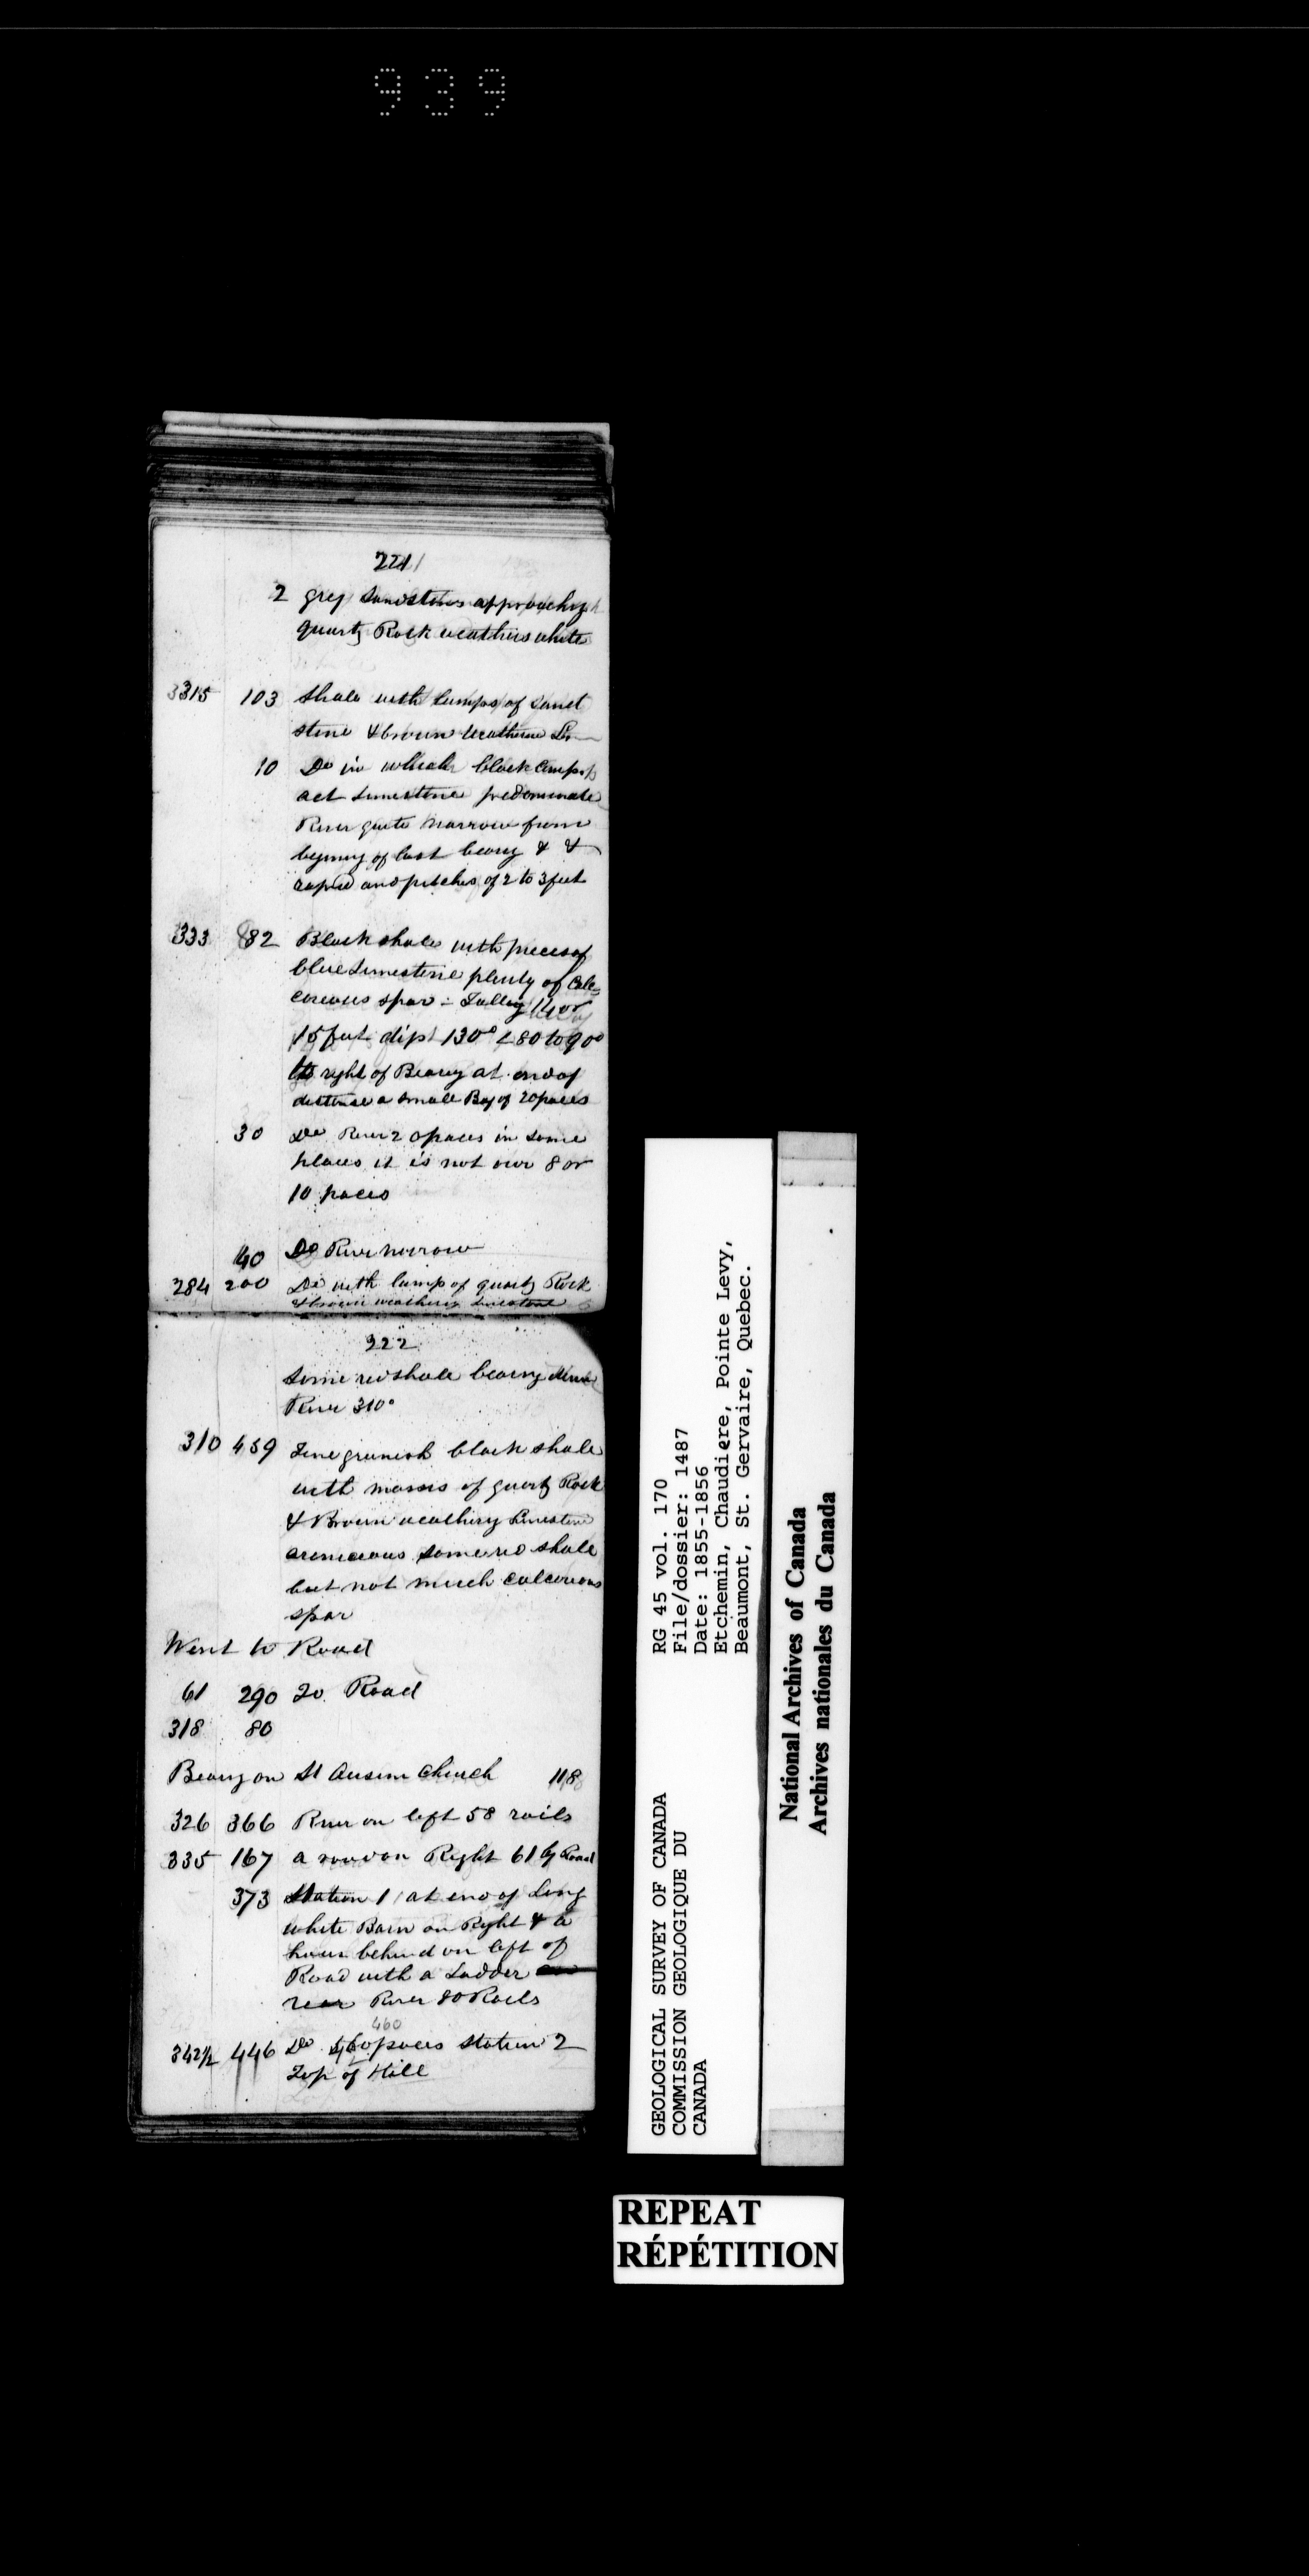 939
221
2 grey sandstones approaching
quartz Rock weathers white
3315 103 Shale with lumps of sand
stone & brown weathering
10 Do in which black comp
act limestone predominate
River quite narrow from
begining of last bearing & &
rapid and pitches of 2 to 3 feet
333 82 Black shale with pieces of
blue limestone plenty of Calc=
careous spar =
15 feet dipt 130° < 80 to 90°
to right of Bearing at end of
distance a small Bay of 20 paces
30 Do River 20 paces in some
places it is not over 8 or
10 paces
40 Do River narrow
284 200 Do with lump of quartz Rock
& brown weathering limestone
222
Some red shale bearing
River 310°
310 459 Fine greenish black shale
with masses of quartz Rock
& Brown weathering limestone
arenaceous some red shale
but not much calcareous
spar
Went to Road
61 290 To Road
318 80
Bearing on St Ansem Church 118
326 366 River on left 58 rails
335 167 a road on Right 61 by Road
373 Station 1 at end of long
white Barn on Right & a
house behind on left of
Road with a Ladder
rear River 80 Rails
460
342½ 446 Do 460 paces station 2
Top of Hill
RG 45 vol. 170
File/dossier: 1487
Date: 1855-1856
Etchemin, Chaudiere, Pointe Levy,
Beaumont, St. Gervaire, Quebec.
GEOLOGICAL SURVEY OF CANADA
COMMISSION GEOLOGIQUE DU
CANADA
National Archives of Canada
Archives nationales du Canada
REPEAT
RÉPÉTITION